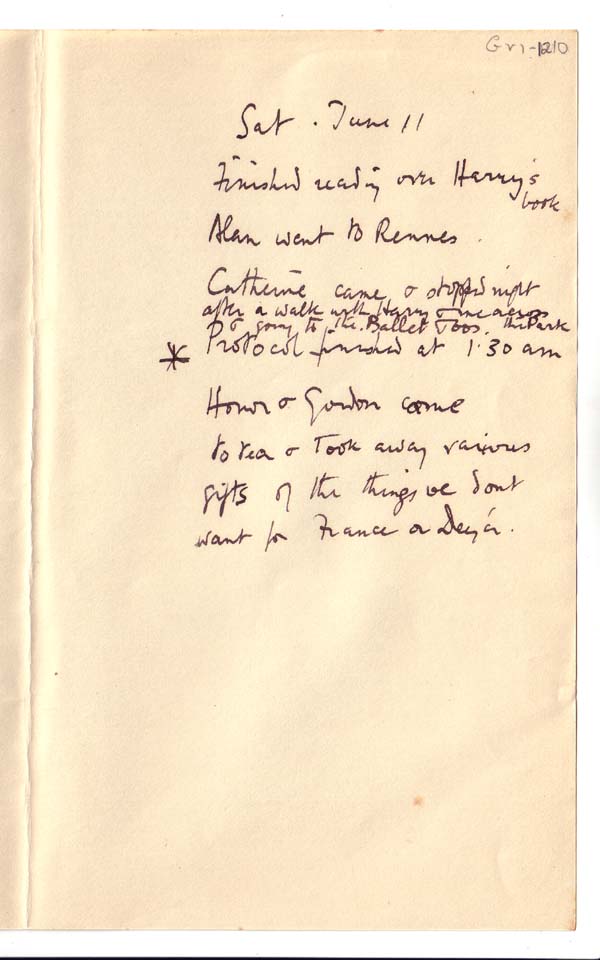 Gv1-1210
Sat. June 11
Finished reading over Harry's
book
Alan went to Rennes.
Catherine came, & stopped night
after a walk with Harry & me across
& going to the Ballet Joos. the Park
* Protocol finished at 1.30 am
Honor & Gordon came
to tea & took away various
gifts of the things we dont
want for France or Deyá.